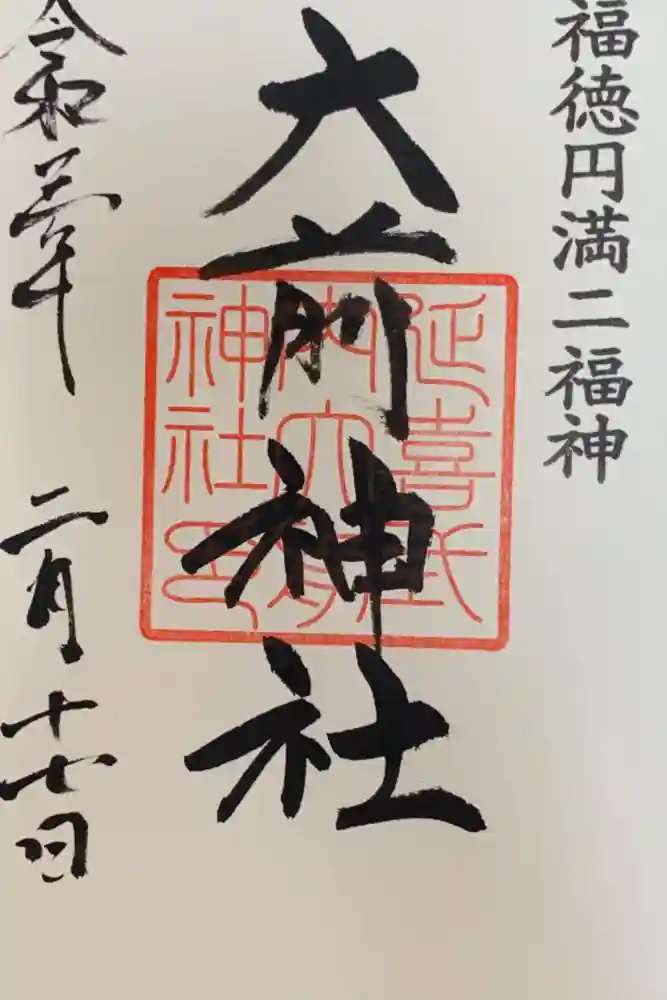 福徳円満二福神
大前神社
延喜式
内大前
神社印
令和三年二月十七日